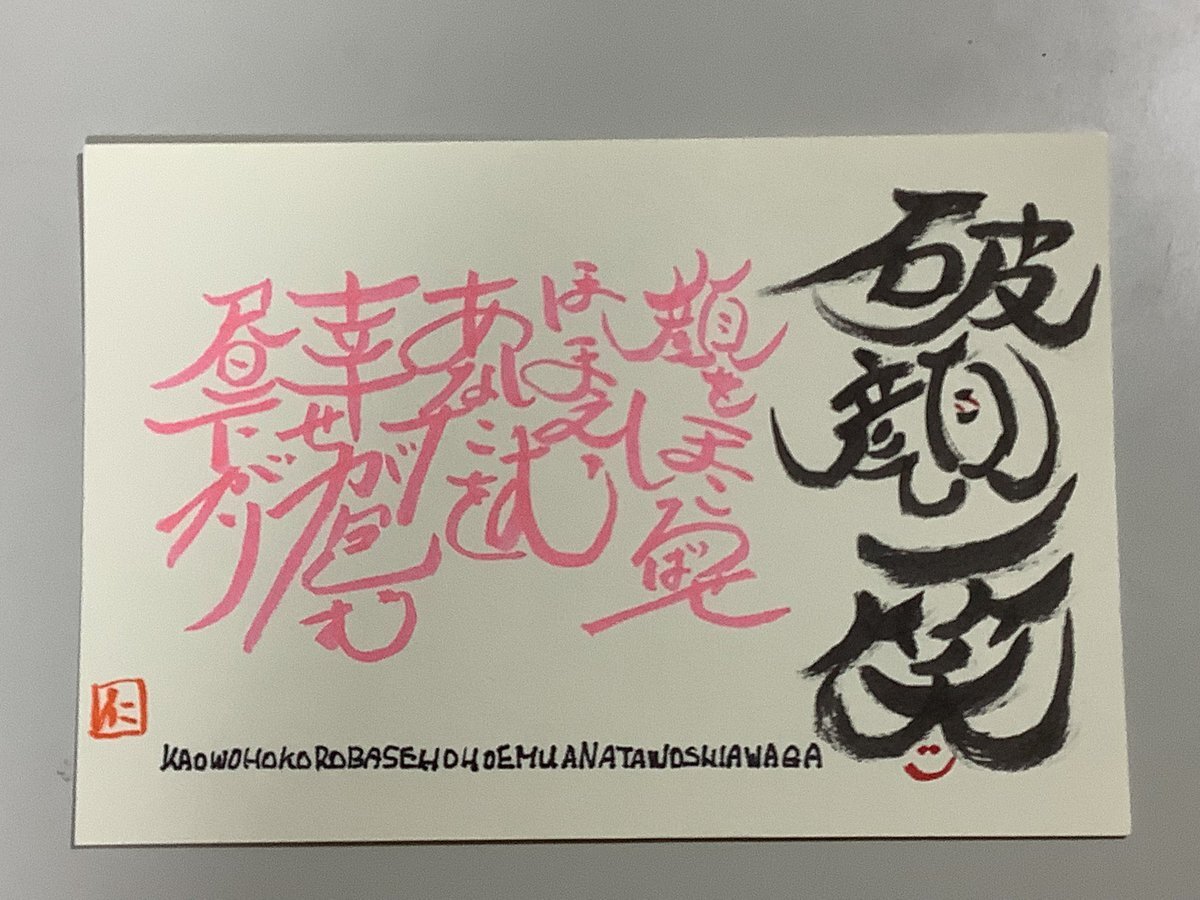 破顔一笑
顔をほころばせ
ほほえむ
あなたを
幸せが包む
昼下がり
仁
KAOWOHOKOROBASEHOHOEMUANATAWOSHIAWAGA